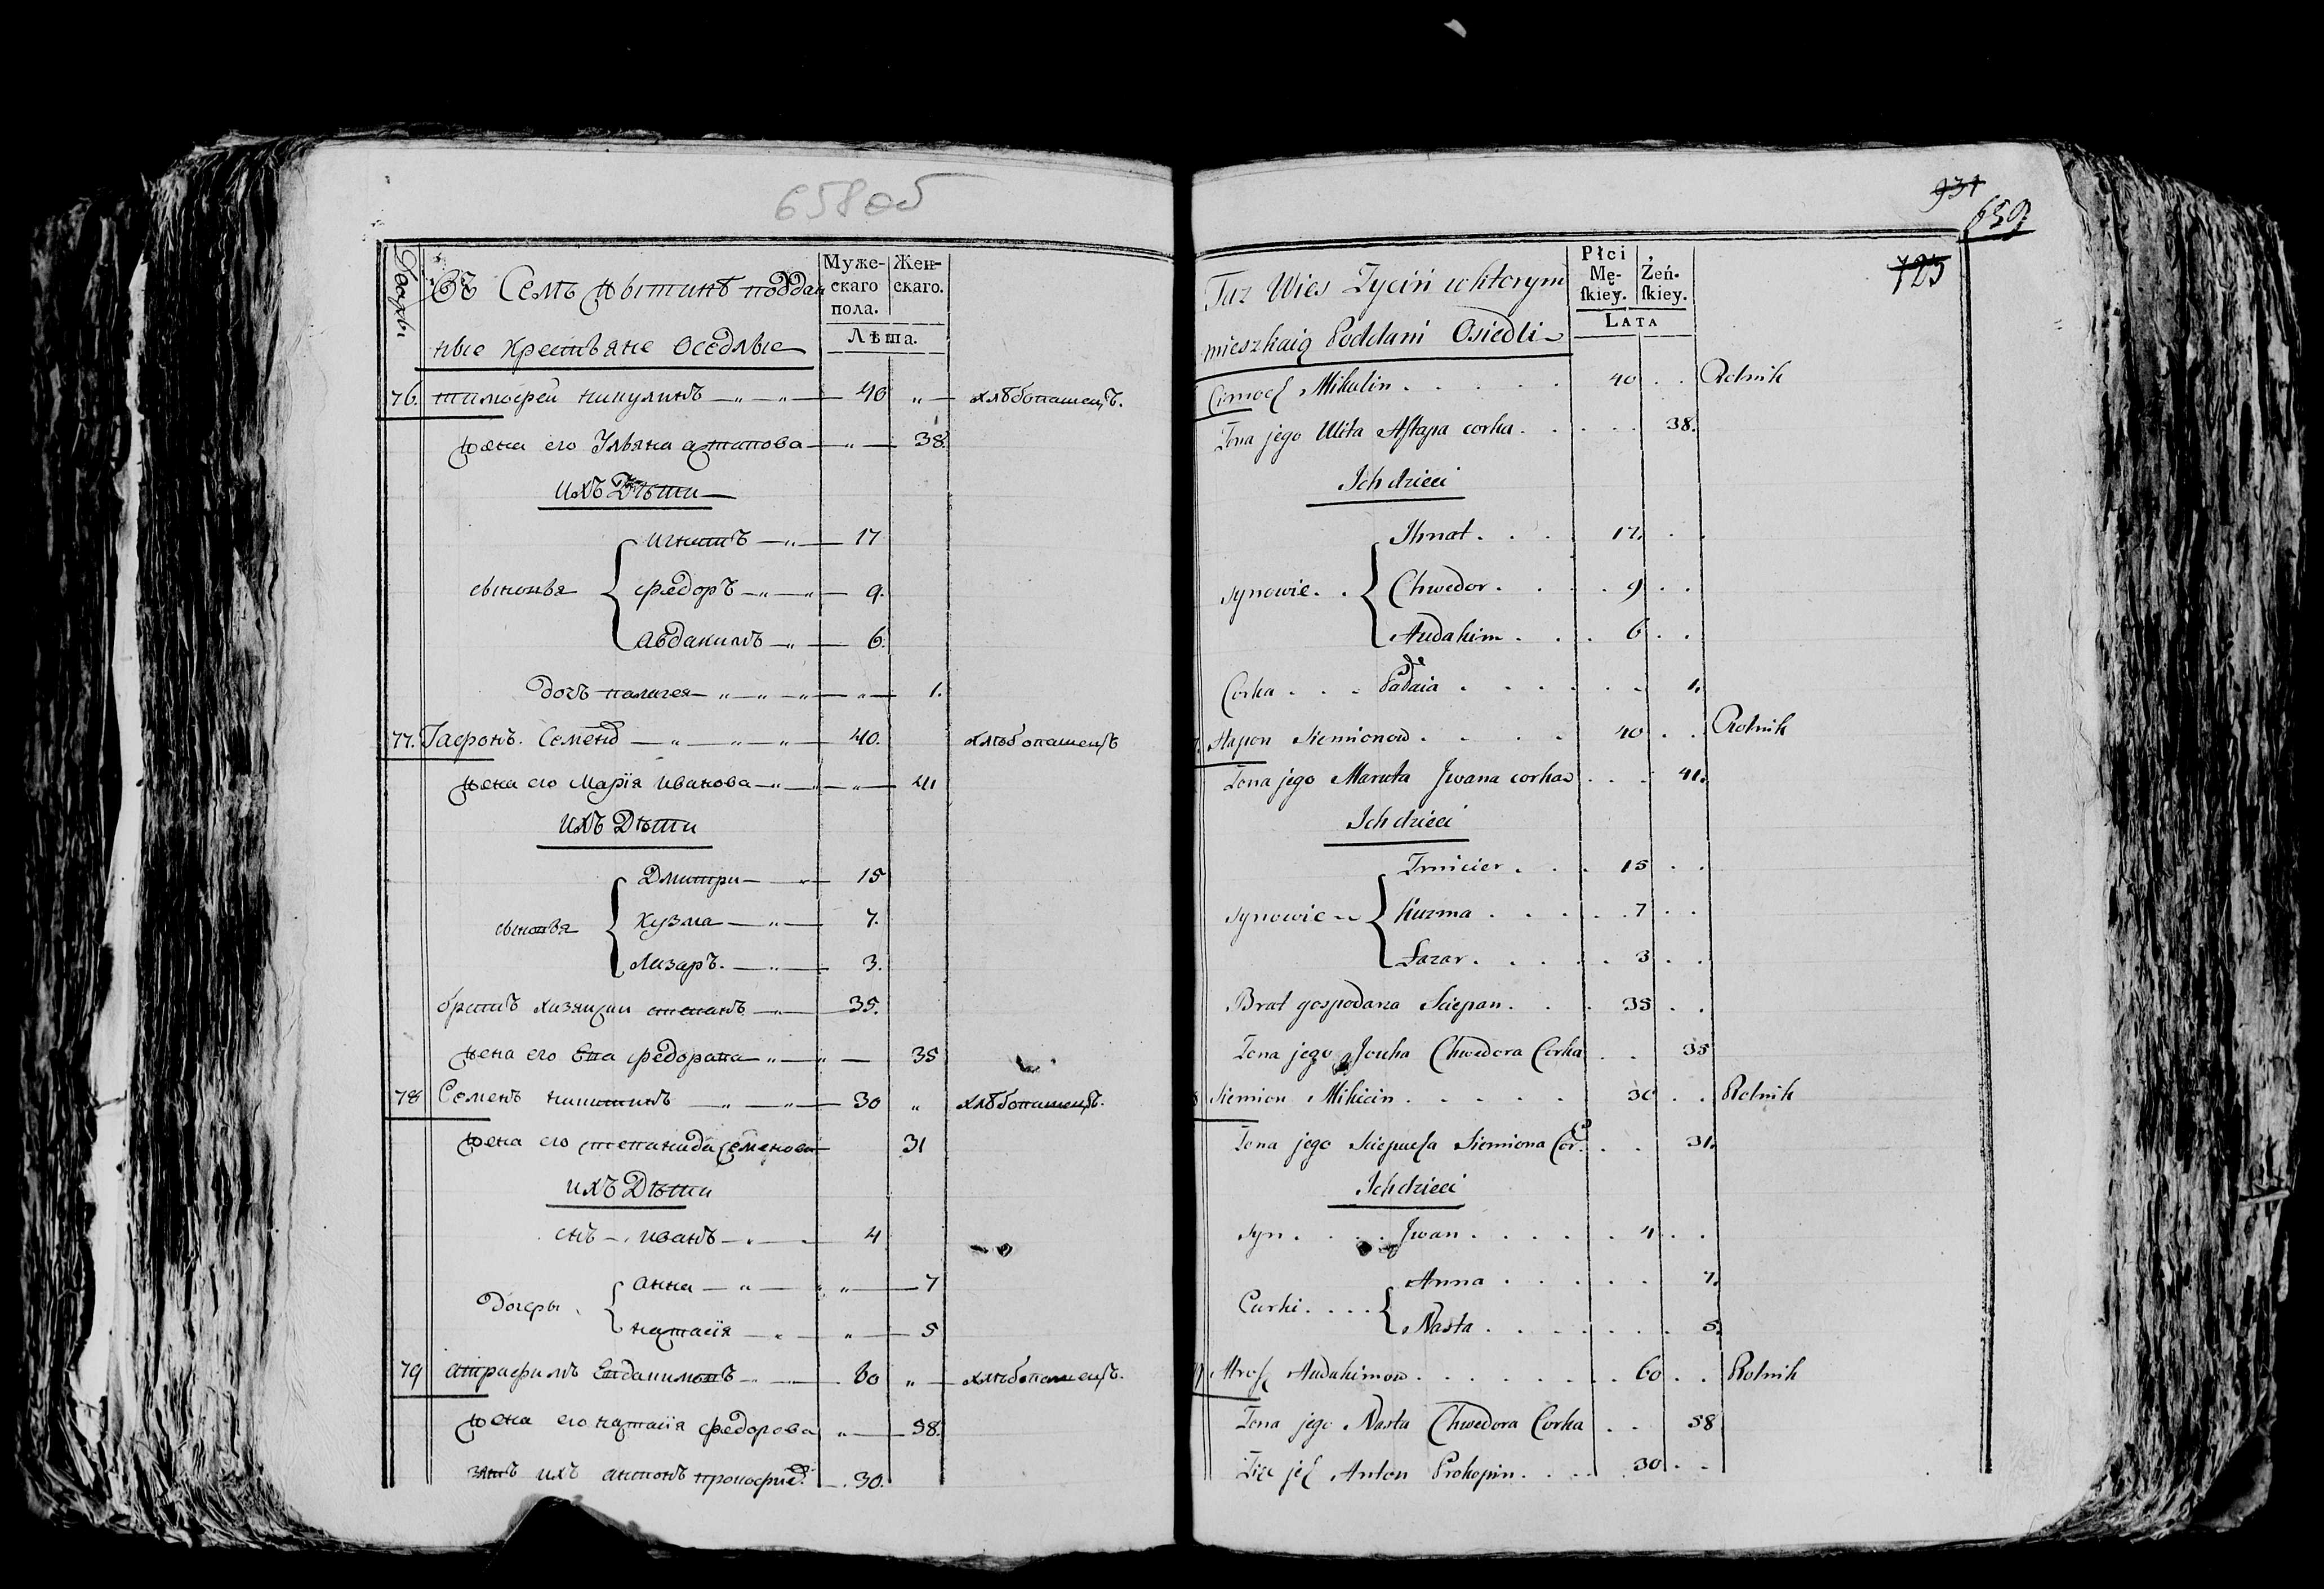 658об
Въ Семъ Жытинѣ поддан
ные крестьяне оседлые
Муже-
скаго
пола.
Жен-
скаго.
Лѣта.
76. тимофей никулинъ 40 " хлѣбопашецъ.
жена его Ульяна астапова " 38.
ихъ Дѣти
сыновья
игнатъ 17
федоръ 9.
авдакимъ 6.
дочь палагея 1.
77. Гафонъ Семенов 40. хлѣбопашецъ
жена его Марїя иванова 41
ихъ Дѣти
сыновья
Дмитри 15
Кузма 7.
Лазаръ. 3.
братъ хазяйзки степанъ 35.
жена его федорана 35
78 Семенъ никитинъ 30 " хлѣбопашецъ.
жена его степанида семенова 31
ихъ Дѣти
снъ иванъ 4
дочеры
анна 7
настасїя 5
79 атрафимъ Евдакимовъ 60 " хлѣбопашецъ.
жена его настасїя федорова " 58.
зять ихъ антонъ 30.
931
659
725
Taz Wies Zyciń w ktorym
mieszkaią Poddani Osiedli
Płci
Mę-
skiey.
Żeń-
skiey.
LATA
Cimoch Mikulin 40 Rolnik
Zona jego Ulita Astapa corka 38.
Ich dzieci
synowie
Ihnat 17.
Chwedor 9
Audakim 6
Corka 1.
Hapon Siemionow 40 Rolnik
Zona jego Maruta Jwana corka 41.
Ich dzieci
synowie
Zmicier 15
Kuzma 7
Łazar 3
Brat gospodarza Sciepan 35
Zona jego Jewka Chwedora Corka 35
Siemion Mikicin 30 Rolnik
Zona jego Siemiona Cor: 31.
Ich dzieci
syn Jwan 4
Curki
Anna 7.
Nasta 5.
Audakimow 60 Rolnik
Zona jego Nasta Chwedora Corka 58
Anton Prokopin 30